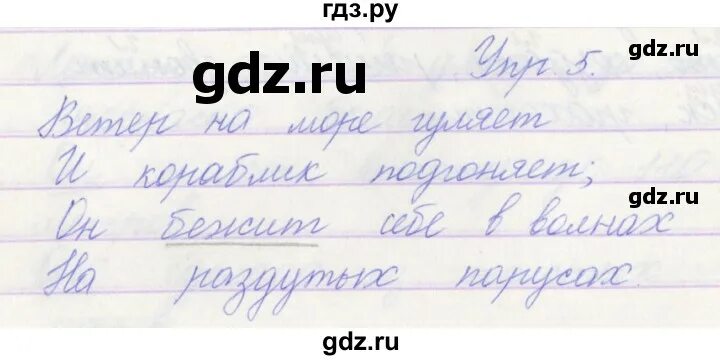 гдз.ру
gdz.ru
Упр. 5.
gdz.ru
Ветер на море гуляет
И кораблик подгоняет;
Он бежит себе в волнах
gdz.ru
На раздутых парусах.
gdz.ru
gdz.ru